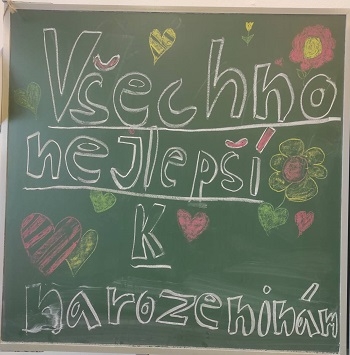 Všechno
nejlepší
K
narozeninám